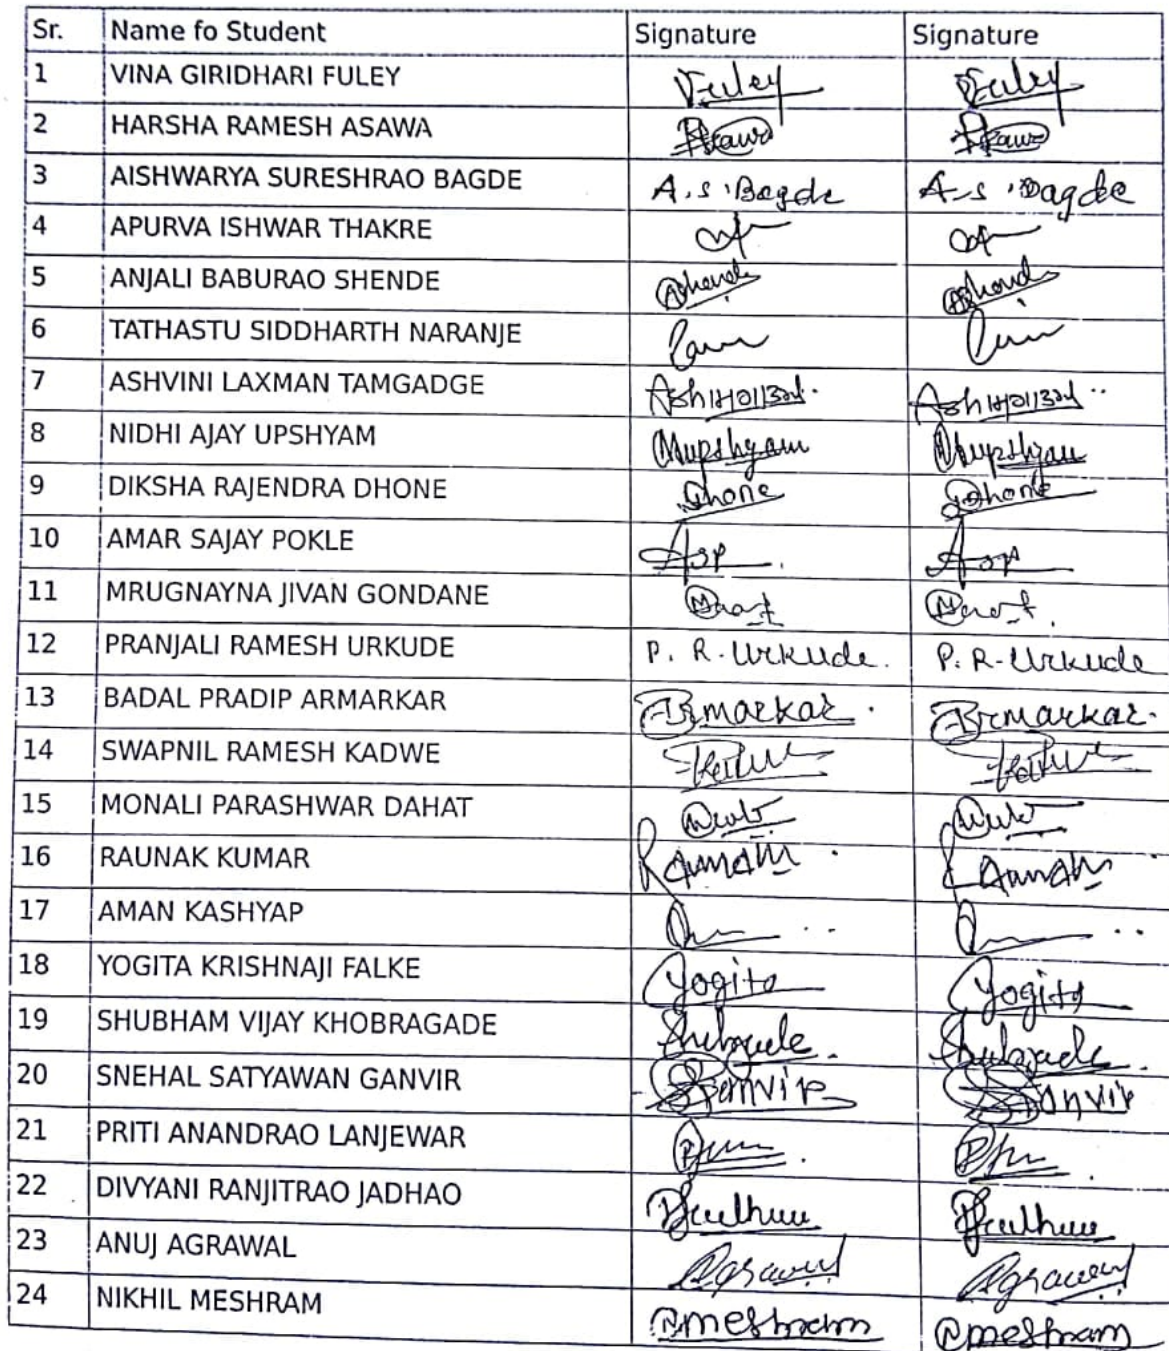 Sr. Name fo Student Signature Signature
1 VINA GIRIDHARI FULEY Fuley Fuley
2 HARSHA RAMESH ASAWA
3 AISHWARYA SURESHRAO BAGDE A.S.Bagde A.S.Bagde
4 APURVA ISHWAR THAKRE
5 ANJALI BABURAO SHENDE
6 TATHASTU SIDDHARTH NARANJE
7 ASHVINI LAXMAN TAMGADGE
8 NIDHI AJAY UPSHYAM Nupshyam Nupshyam
9 DIKSHA RAJENDRA DHONE Dhone Dhone
10 AMAR SAJAY POKLE Asp Asp
11 MRUGNAYNA JIVAN GONDANE
12 PRANJALI RAMESH URKUDE P. R. Urkude. P. R. Urkude
13 BADAL PRADIP ARMARKAR
14 SWAPNIL RAMESH KADWE
15 MONALI PARASHWAR DAHAT
16 RAUNAK KUMAR
17 AMAN KASHYAP
18 YOGITA KRISHNAJI FALKE Yogita Yogita
19 SHUBHAM VIJAY KHOBRAGADE
20 SNEHAL SATYAWAN GANVIR Ganvir Ganvir
21 PRITI ANANDRAO LANJEWAR
22 DIVYANI RANJITRAO JADHAO
23 ANUJ AGRAWAL Agrawal Agrawal
24 NIKHIL MESHRAM Nmeshram Nmeshram